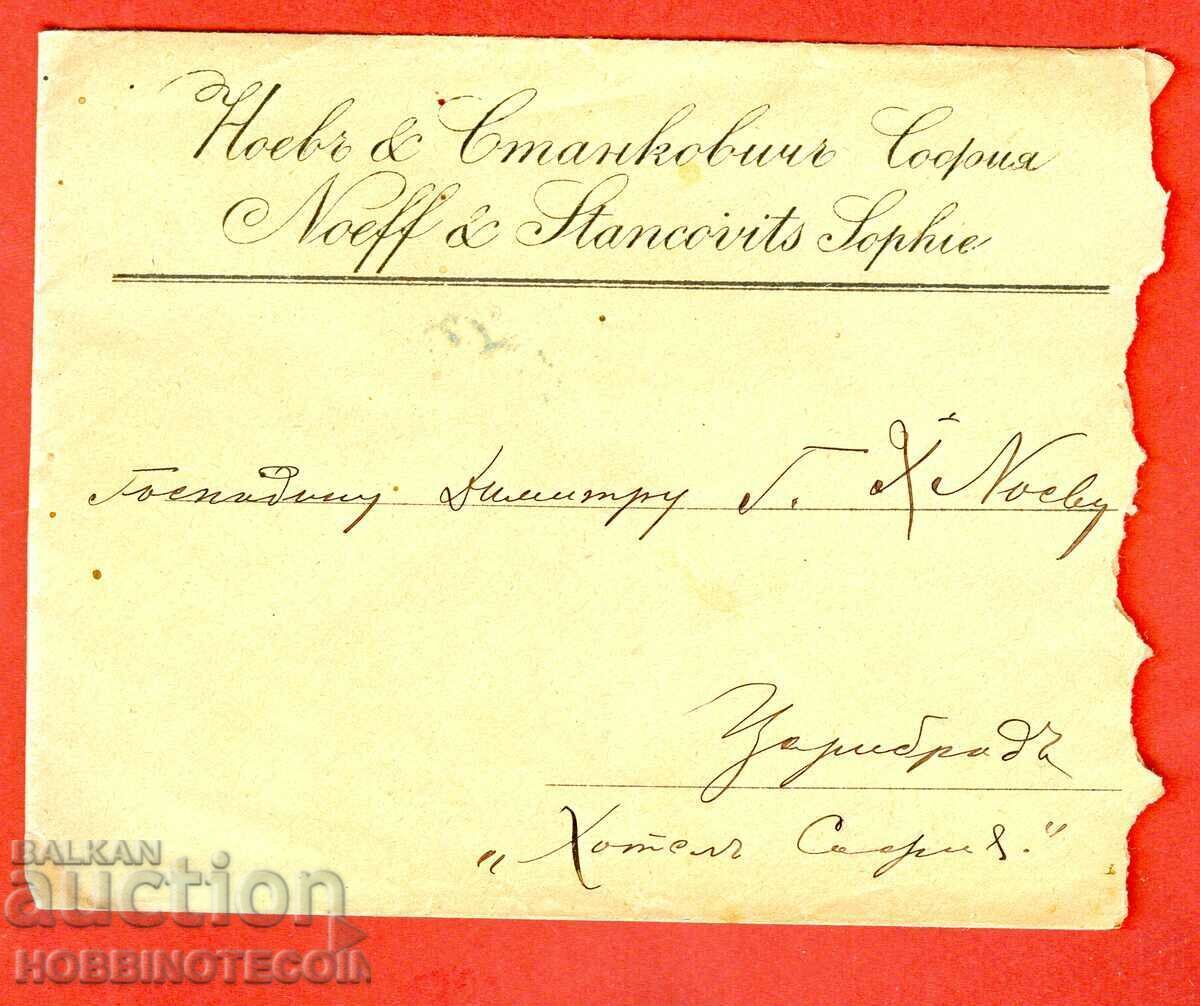 Ноевъ & Станковичъ София
Noeff & Stancovits Sophie
Господину Димитру Г. Х Ноеву
Царибродъ
„Хотелъ София."
BALKAN
auction
HOBBINOTECOIN